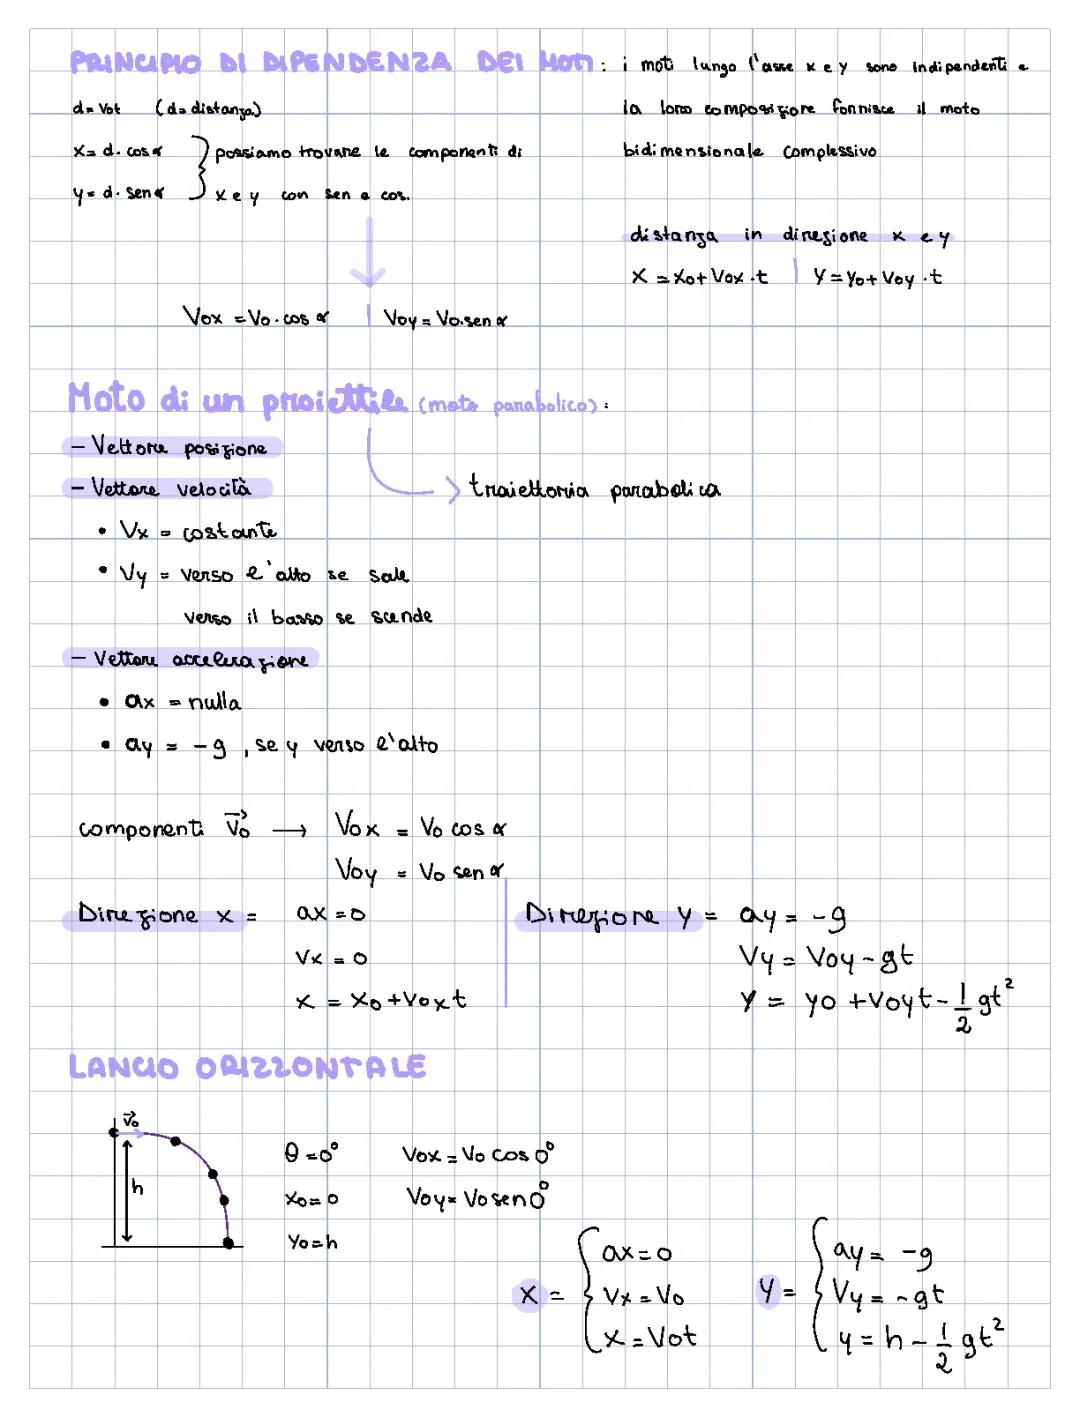 PRINCIPIO DI DIPENDENZA DEI MOTI: i moti lungo l'asse x e y sono indipendenti e
la loro composizione fornisce il moto
bidimensionale complessivo
d = Vot (d = distanza)
x = d · cos α
y = d · sen α
possiamo trovare le componenti di
x e y con sen e cos.
distanza in direzione x e y
X = Xo + Vox · t | Y = Yo + Voy · t
Vox = Vo · cos α | Voy = Vo · sen α
Moto di un proiettile (moto parabolico):
- Vettore posizione
- Vettore velocità
→ traiettoria parabolica
• Vx = costante
• Vy = verso l'alto se sale
verso il basso se scende
- Vettore accelerazione
• ax = nulla
• ay = -g, se y verso l'alto
componenti V⃗o → Vox = Vo cos α
Voy = Vo sen α
Direzione x = ax = 0
Vx = 0
x = Xo + Voxt
Direzione y = ay = -g
Vy = Voy - gt
Y = yo + Voyt - 1/2 gt²
LANCIO ORIZZONTALE
V⃗o
h
θ = 0°
Xo = 0
Yo = h
Vox = Vo cos 0°
Voy = Vo sen 0°
X = { ax = 0
Vx = Vo
x = Vot
Y = { ay = -g
Vy = -gt
y = h - 1/2 gt²